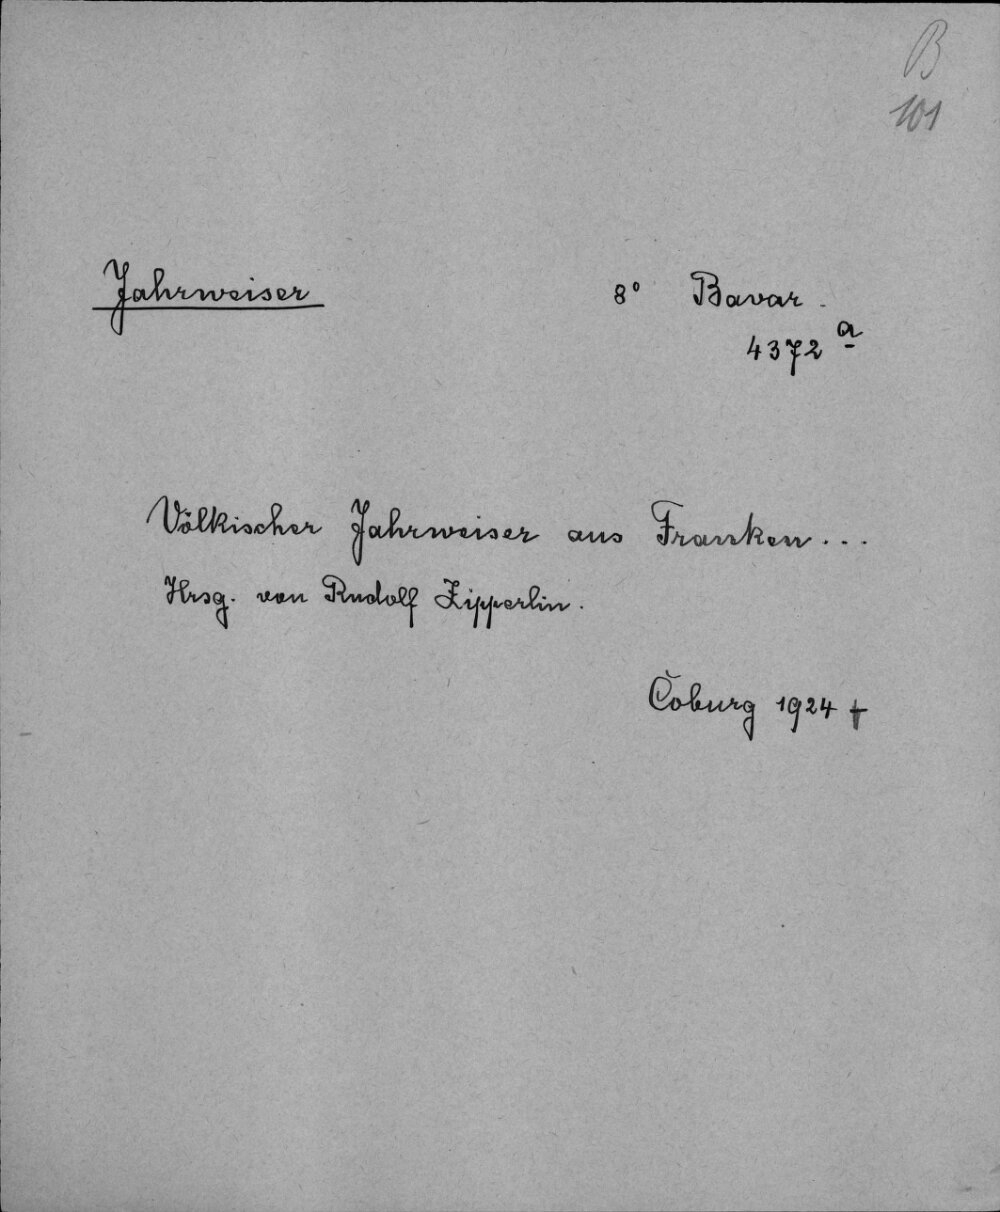 B
101
Jahrweiser 8° Bavar.
4372 a
Völkischer Jahrweiser aus Franken...
Hrsg. von Rudolf Zipperlin.
Coburg 1924 +